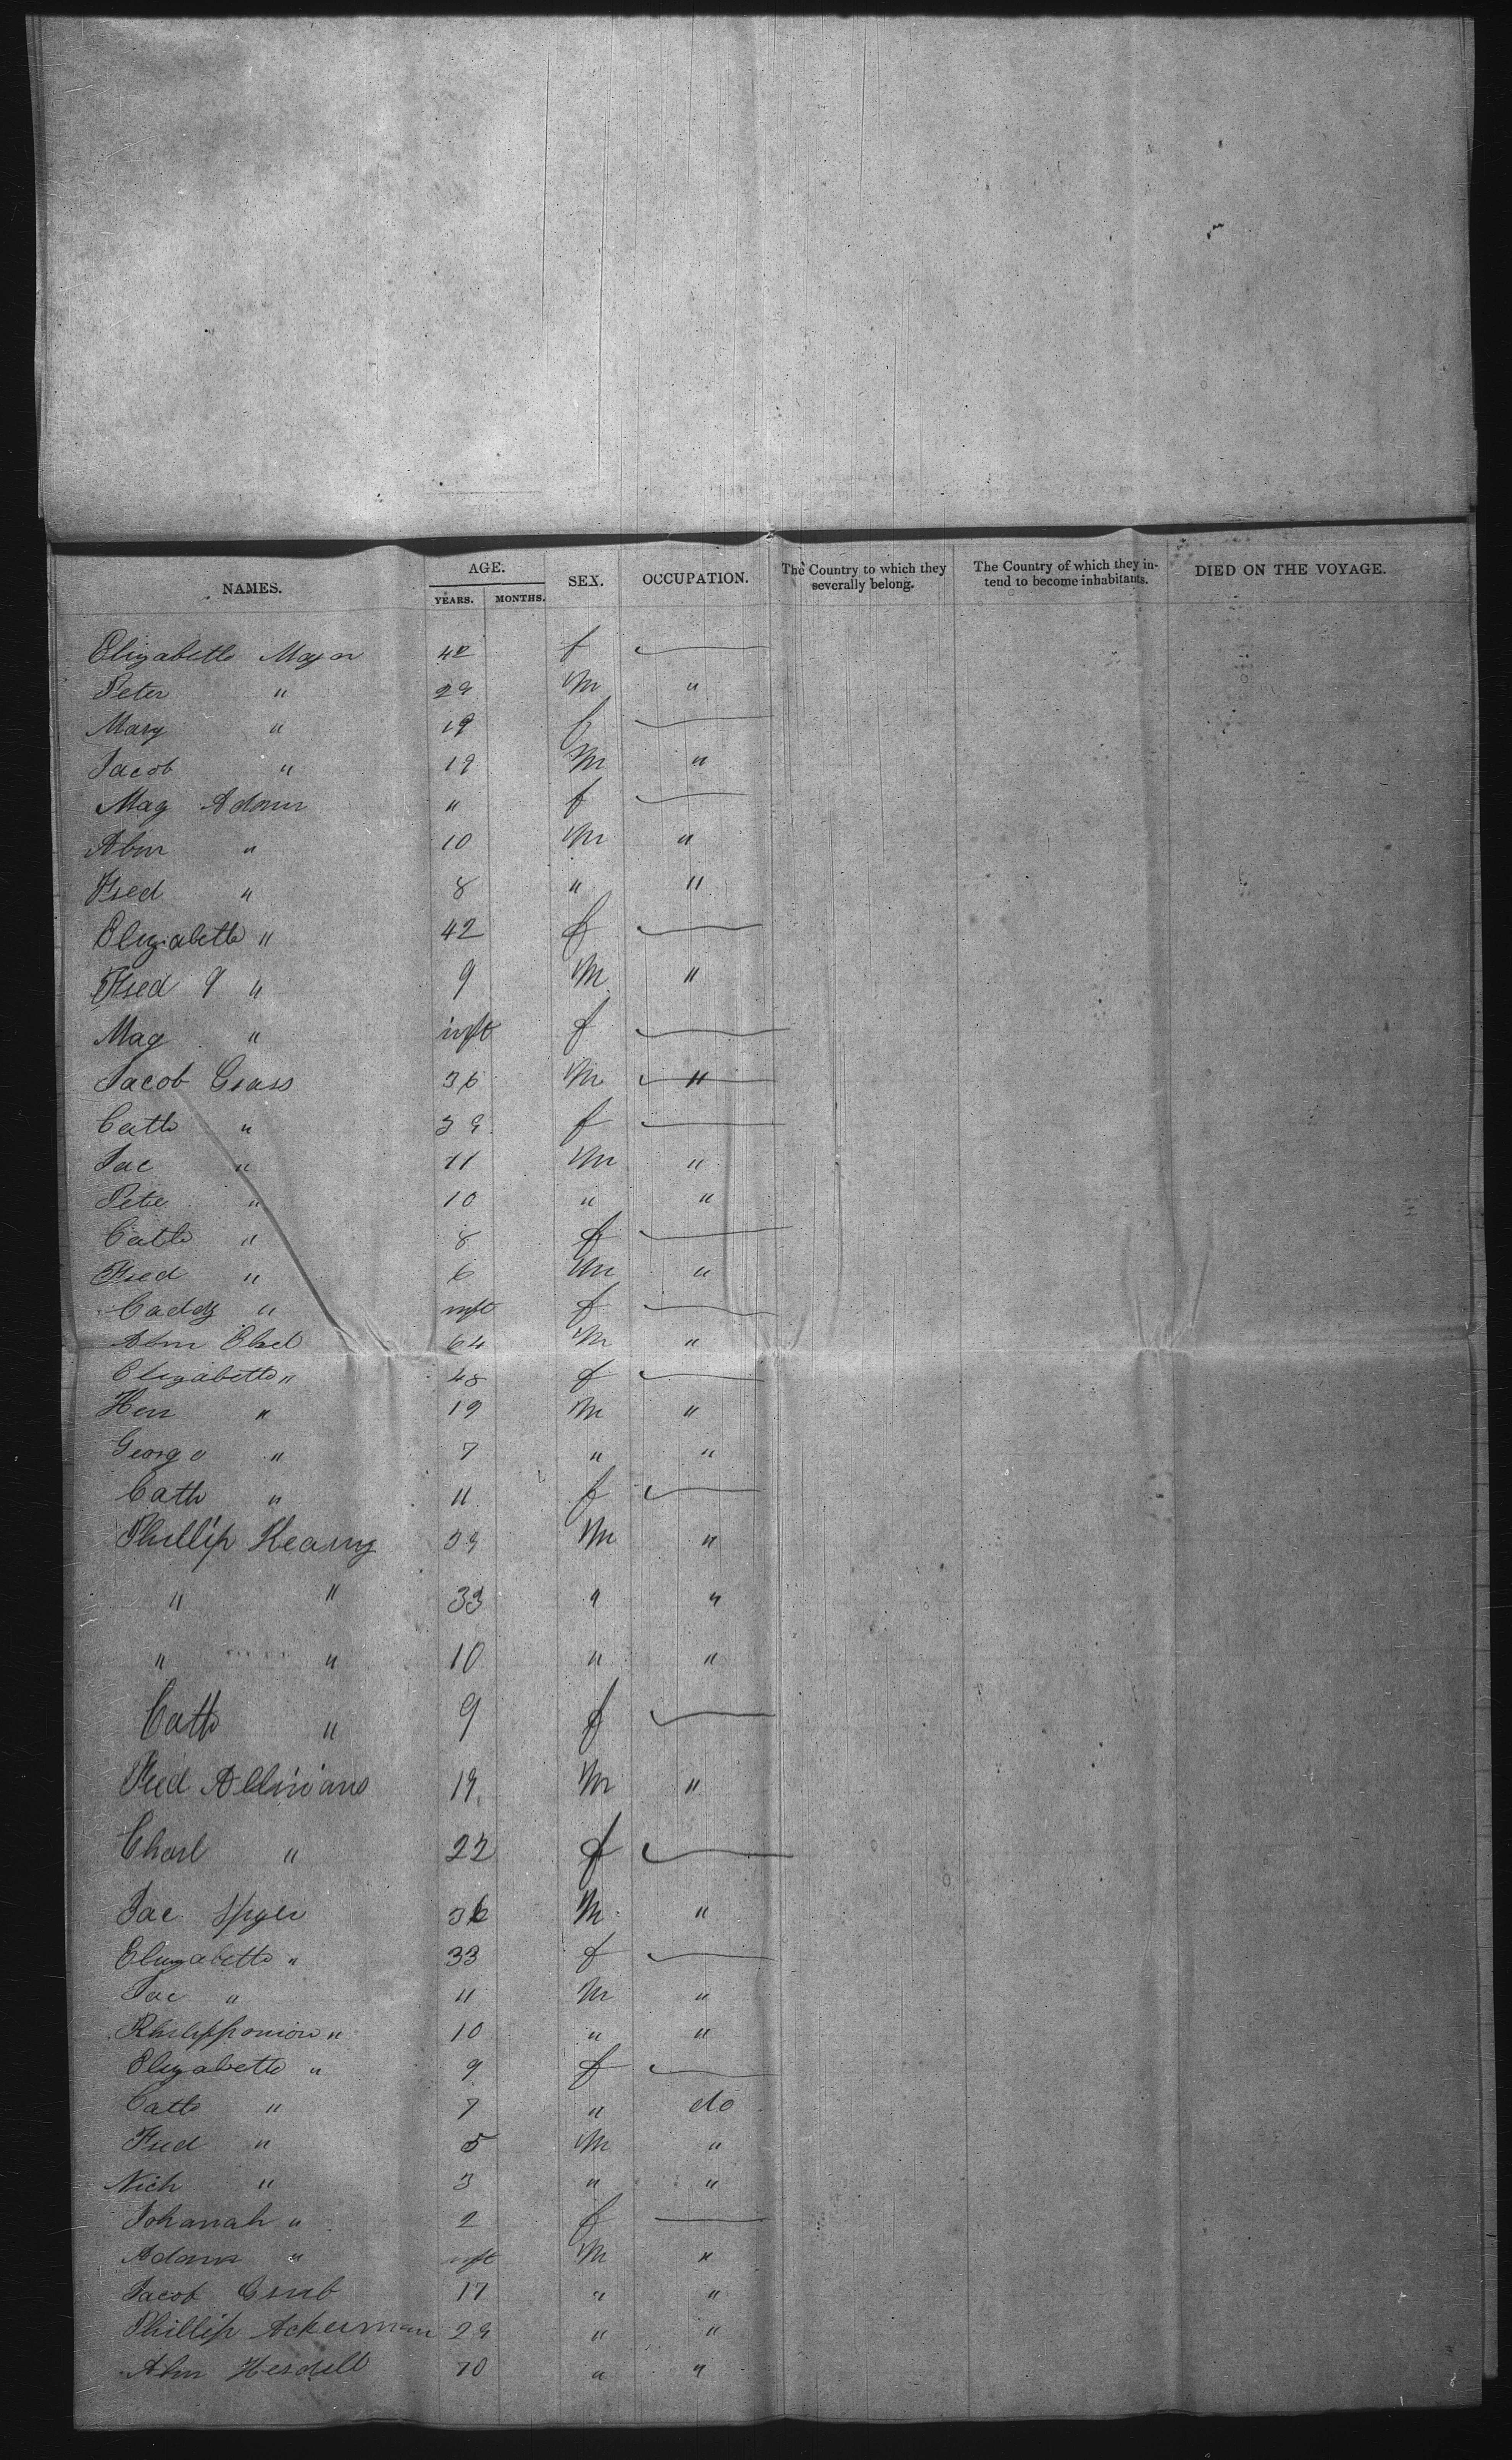 NAMES. AGE. YEARS. MONTHS. SEX. OCCUPATION. The Country to which they severally belong. The Country of which they in-tend to become inhabitants. DIED ON THE VOYAGE.
Elizabeth Major 42 f
Peter " 29 M "
Mary " 19 f
Jacob " 19 M "
Mag Adam " f
Abm " 10 M "
Fred " 8 " "
Elizabeth " 42 f
Fred 9 " 9 M "
Mag " inft f
Jacob Grass 36 M "
Cath " 39 f
Jac " 11 M "
Pete " 10 " "
Cath " 8 f
Fred " 6 M "
Caddy " inft f
Abm 64 M "
Elizabeth " 48 f
Hen " 19 M "
George " 7 " "
Cath " 11 f
Phillip 39 M "
" " 33 " "
" " 10 " "
Cath " 9 f
Fred 19 M "
Charl " 22 f
Jac Spyer 36 M "
Elizabeth " 33 f
Jac " 11 M "
" 10 " "
Elizabeth " 9 f
Cath " 7 " do
Fred " 5 M "
Nich " 3 " "
Johanah " 2 f
Adam " inft M "
Jacob Grub 17 " "
Phillip Ackerman 29 " "
Abm Herdell 70 " "